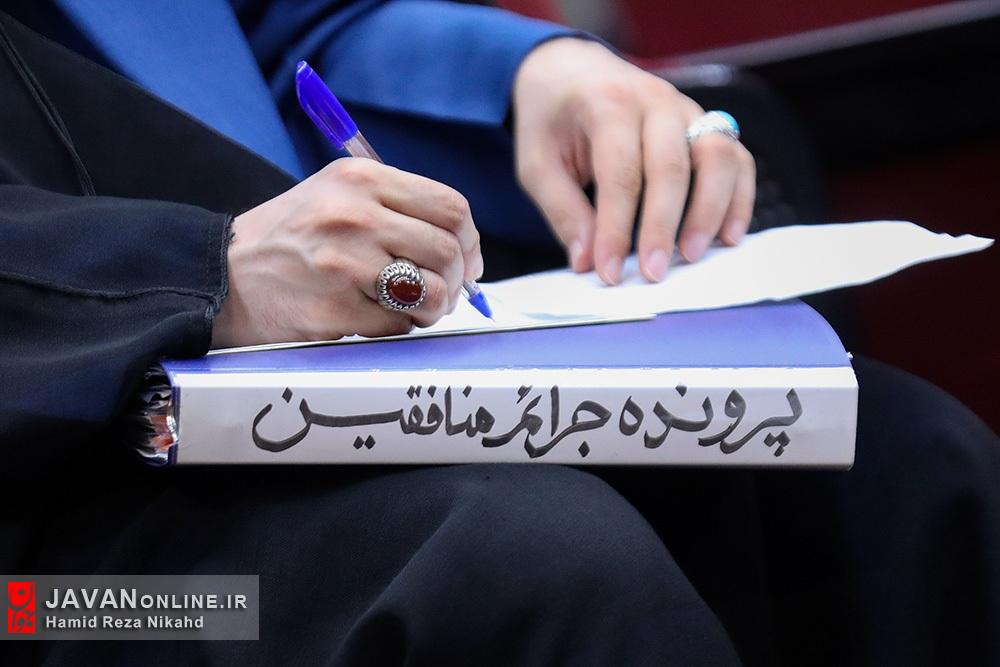 پرونده جرائم منافقین
JAVANONLINE.IR
Hamid Reza Nikahd